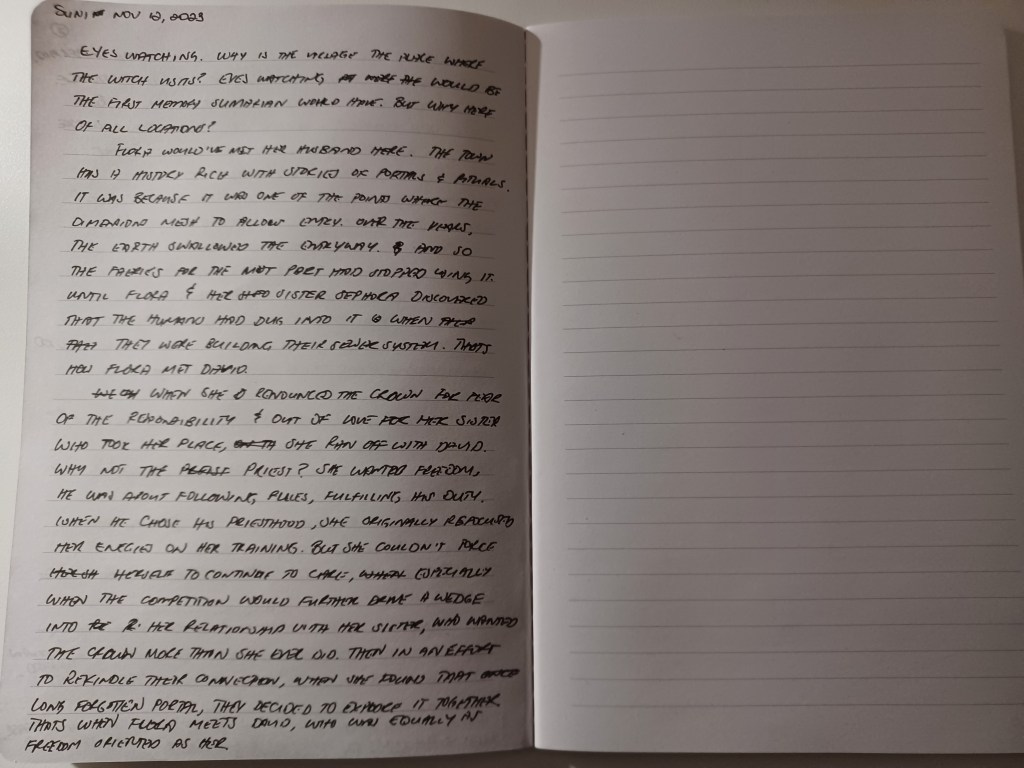 SUN Nov 12, 2023
EYES WATCHING. WHY IS THE VILLAGE THE PLACE WHERE
THE WITCH VISITS? EYES WATCHING WOULD BE
THE FIRST MEMORY SUMARIAN WOULD HAVE. BUT WHY HERE
OF ALL LOCATIONS?
FLORA WOULD'VE MET HER HUSBAND HERE. THE TOWN
HAS A HISTORY RICH WITH STORIES OF PORTALS & RITUALS.
IT WAS BECAUSE IT WAS ONE OF THE POINTS WHERE THE
DIMENSIONS MESH TO ALLOW ENTRY. OVER THE YEARS,
THE EARTH SWALLOWED THE ENTRYWAY. AND SO
THE FOR THE MOST PART HAD STOPPED USING IT.
UNTIL FLORA & HER SISTER SEPHORA DISCOVERED
THAT THE HUMANS HAD DUG INTO IT WHEN
THEY WERE BUILDING THEIR SEWER SYSTEM. THATS
HOW FLORA MET DAVID.
WHEN SHE RENOUNCED THE CROWN FOR FEAR
OF THE RESPONSIBILITY & OUT OF LOVE FOR HER SISTER
WHO TOOK HER PLACE, SHE RAN OFF WITH DAVID.
WHY NOT THE PRIEST? SHE WANTED FREEDOM,
HE WAS ABOUT FOLLOWING RULES, FULFILLING HIS DUTY.
WHEN HE CHOSE HIS PRIESTHOOD, SHE ORIGINALLY REFOCUSED
HER ENERGIES ON HER TRAINING. BUT SHE COULDN'T FORCE
HERSELF TO CONTINUE TO CARE, ESPECIALLY
WHEN THE COMPETITION WOULD FURTHER DRIVE A WEDGE
INTO HER RELATIONSHIP WITH HER SISTER, WHO WANTED
THE CROWN MORE THAN SHE EVER DID. THEN IN AN EFFORT
TO REKINDLE THEIR CONNECTION, WHEN SHE FOUND THAT
LONG FORGOTTEN PORTAL, THEY DECIDED TO EXPLORE IT TOGETHER.
THATS WHEN FLORA MEETS DAVID, WHO WAS EQUALLY AS
FREEDOM ORIENTED AS HER.